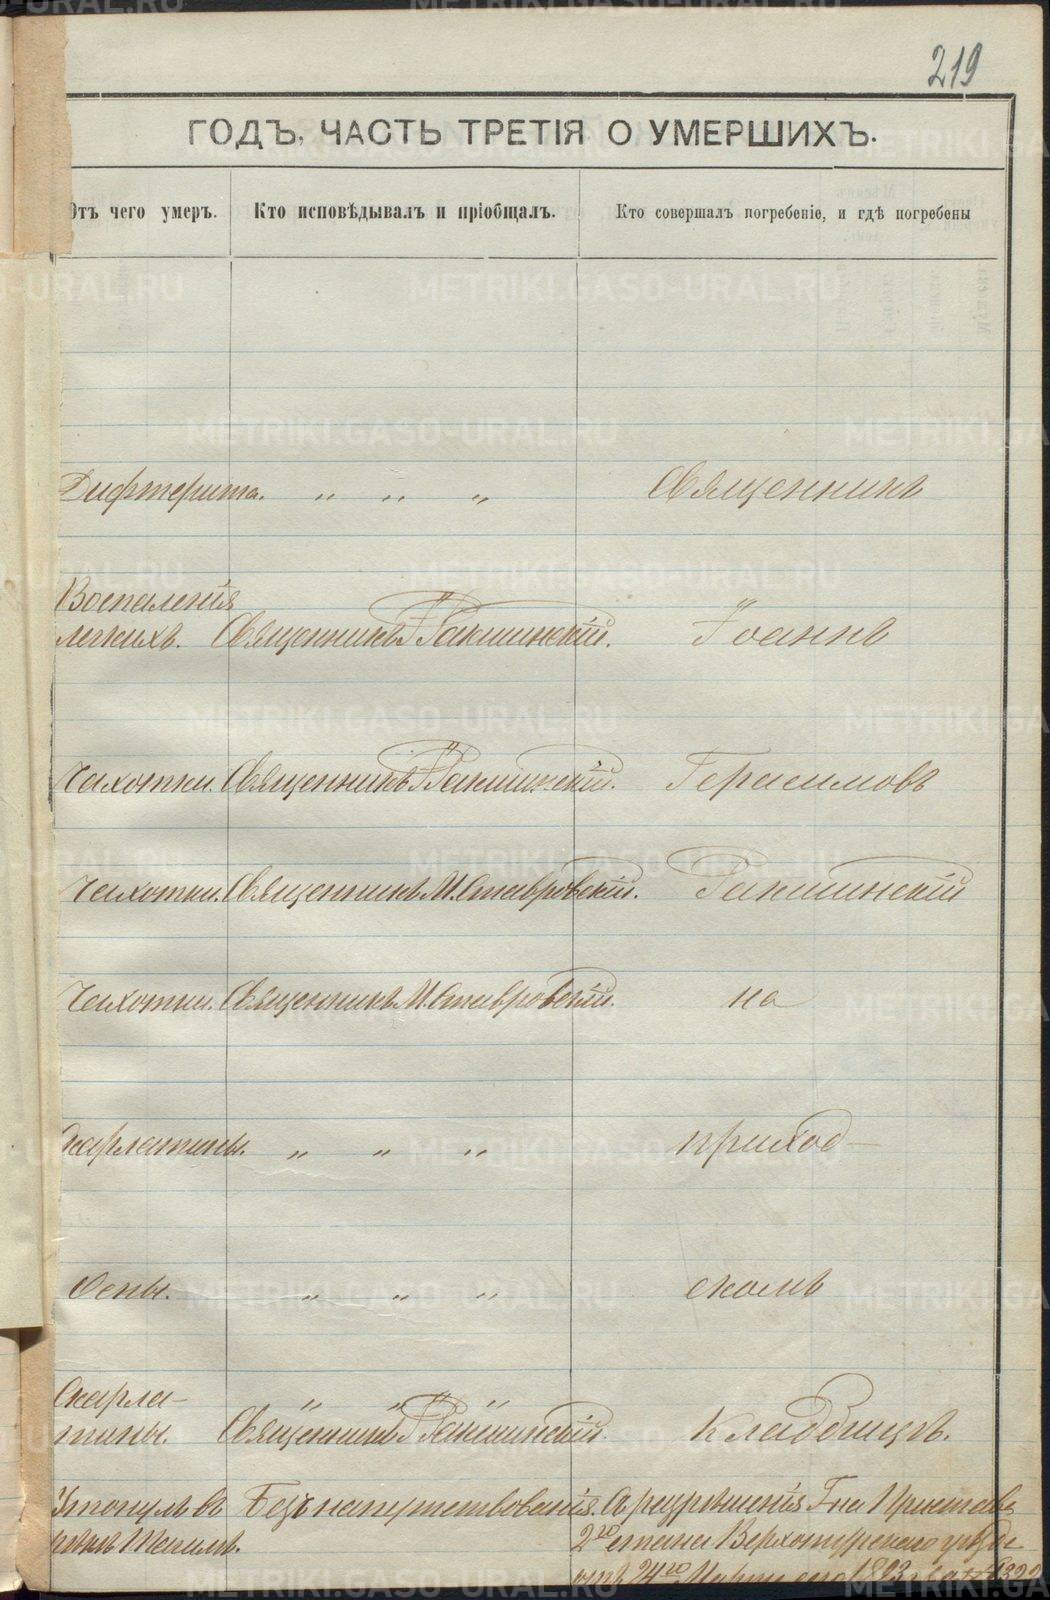 219
ГОДЪ, ЧАСТЬ ТРЕТІЯ О УМЕРШИХЪ.
Отъ чего умеръ. Кто исповѣдывалъ и пріобщалъ. Кто совершалъ погребеніе, и гдѣ погребены
Дифтерита. „ „ „ Священникъ
Воспаленія
легкихъ. Священникъ І Ракшинскій. Іоаннъ
Чахотки. Священникъ І Ракшинскій. Герасимовъ
Чахотки. Священникъ М. Ставровскій. Ракшинскій
Чахотки. Священникъ М. Ставровскій. на
Скарлатины. „ „ „ приход-
Оспы. „ „ „ скомъ
Скарла- „ „ „
тины. Священникъ І Ракшинскій. кладбищѣ.
Утонулъ въ Безъ напутствованія. Съ разрѣшенія Г-на Пристава
рѣкѣ Тагилѣ. 2го стана Верхотурскаго уѣзда
отъ 24го Марта сего 1893 г за №
METRIKI.GASO-URAL.RU